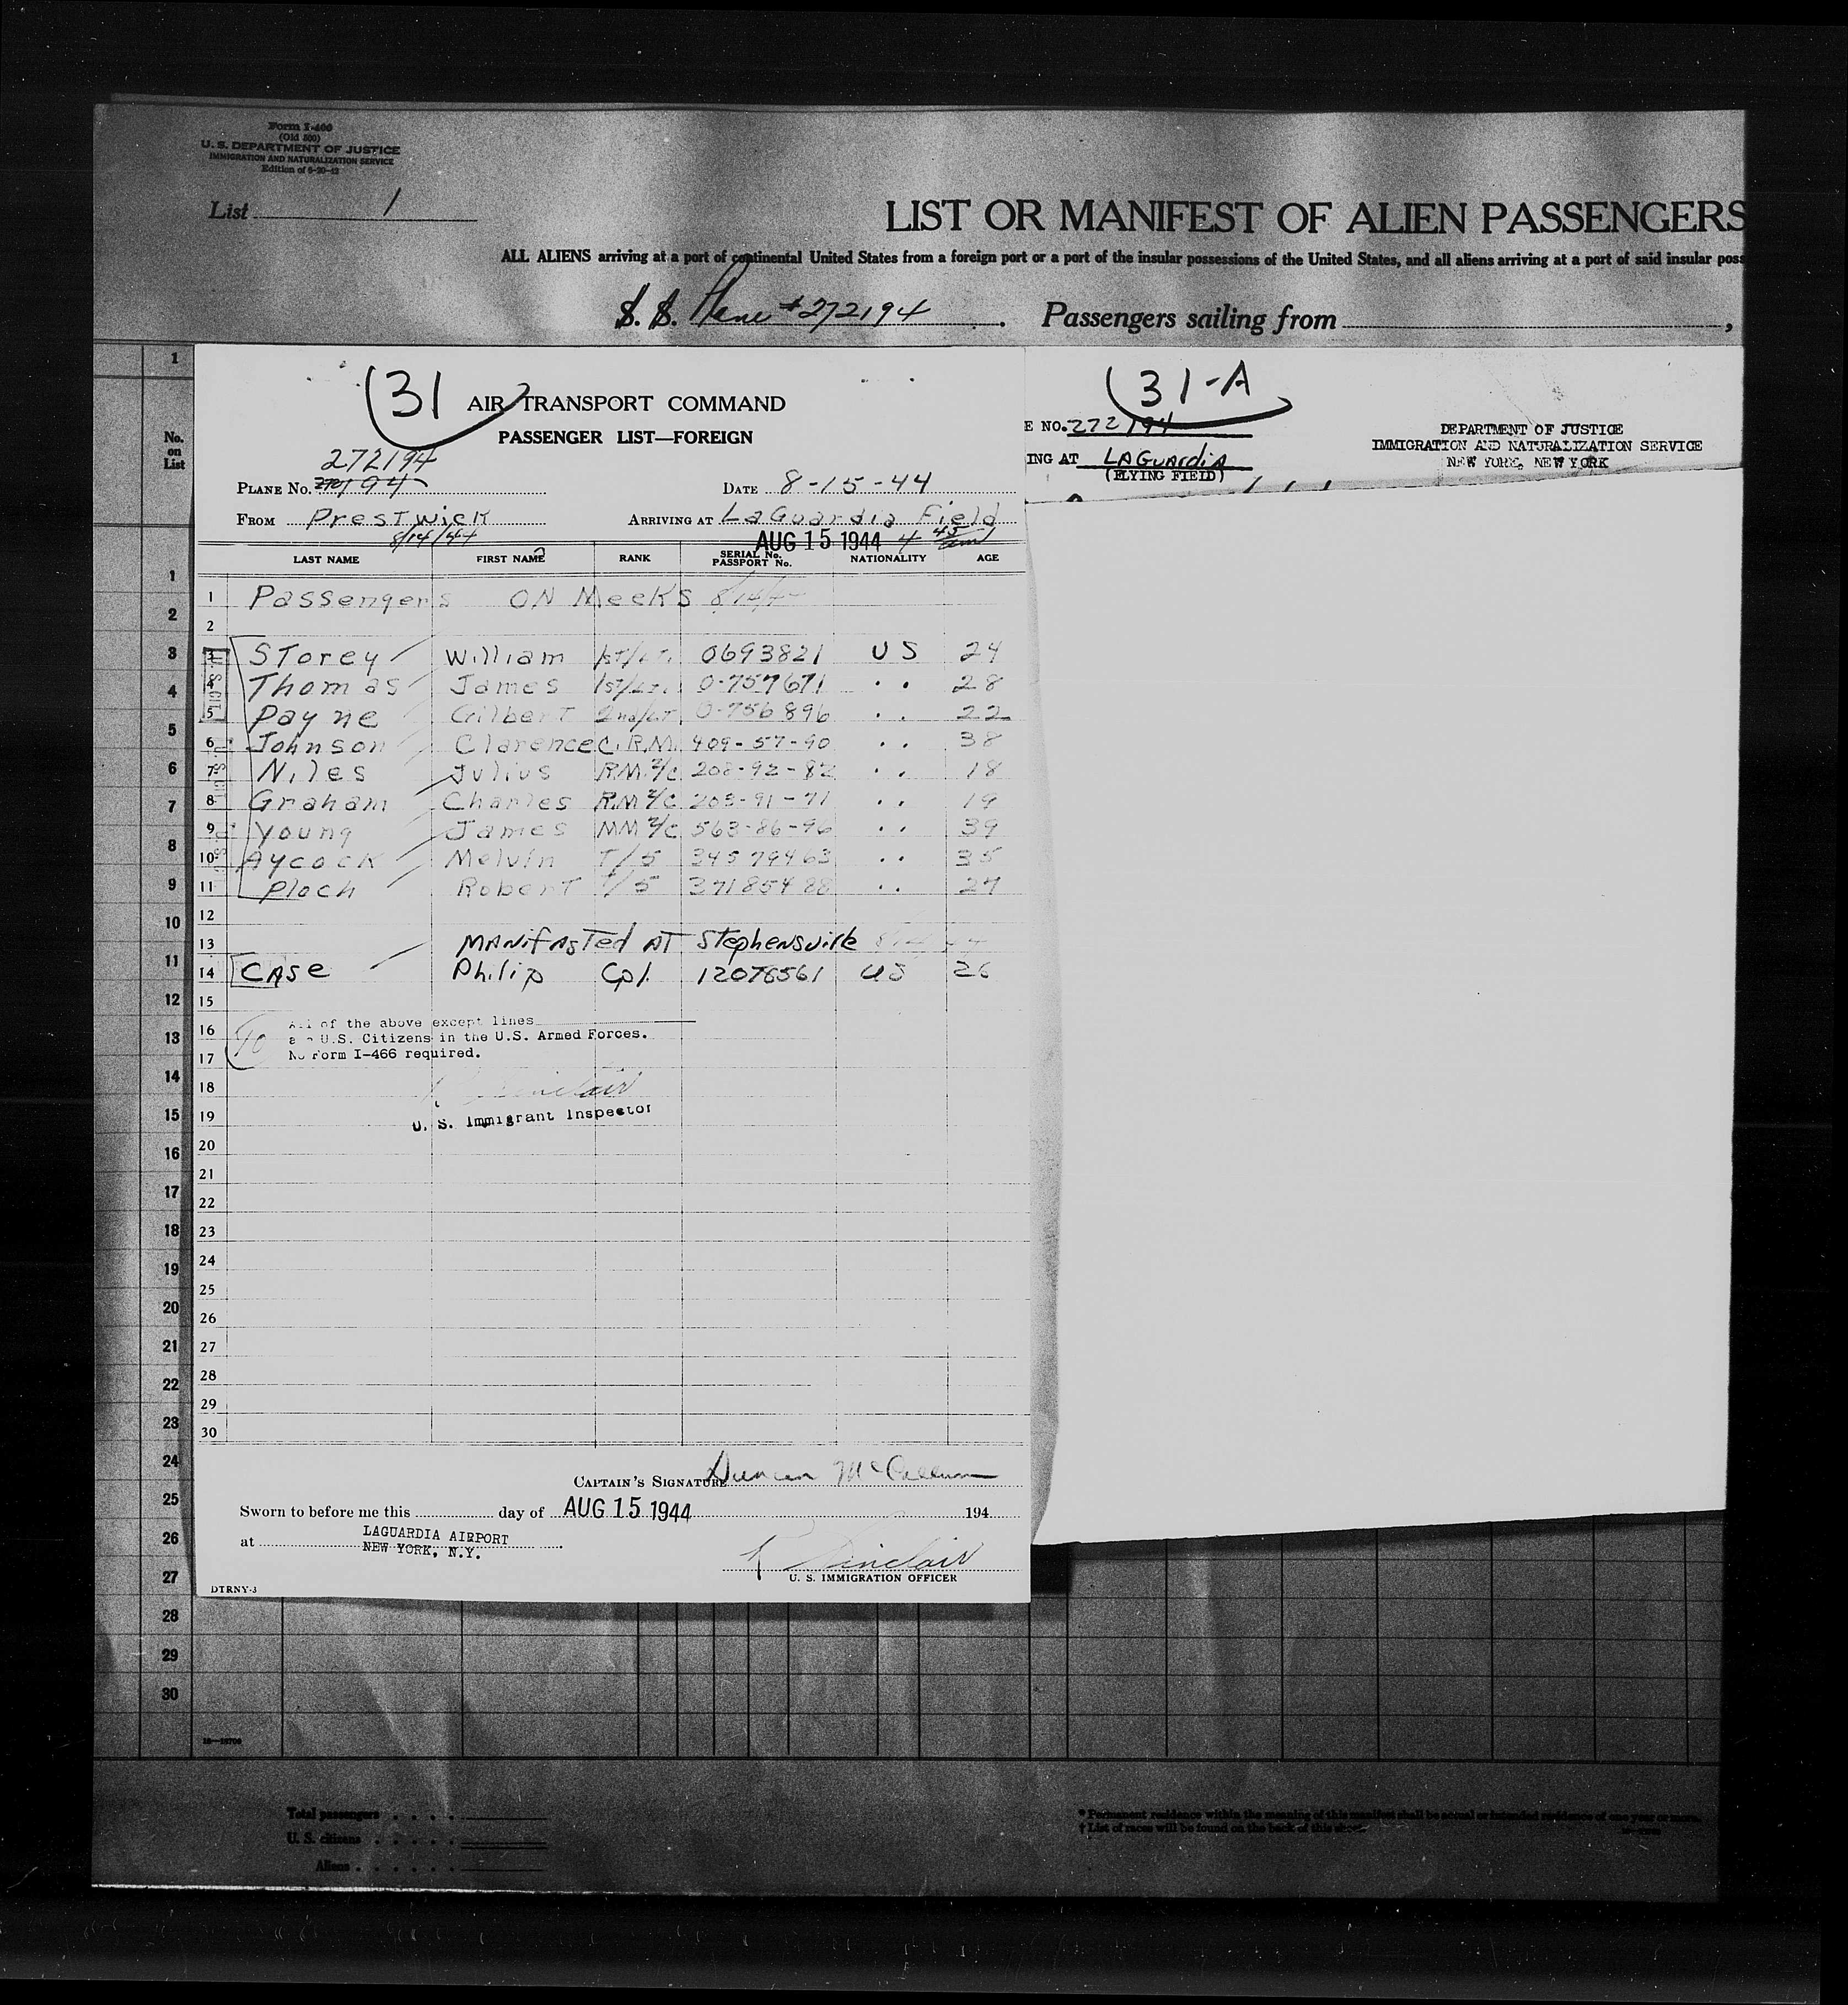 Form I-400
(Old 500)
U. S. DEPARTMENT OF JUSTICE
IMMIGRATION AND NATURALIZATION SERVICE
Edition of 6-20-42
List 1
LIST OR MANIFEST OF ALIEN PASSENGERS
ALL ALIENS arriving at a port of continental United States from a foreign port or a port of the insular possessions of the United States, and all aliens arriving at a port of said insular poss
S. S. Plane #272194. Passengers sailing from ,
No. on List
(31
AIR TRANSPORT COMMAND
PASSENGER LIST—FOREIGN
272194
PLANE NO. 194 DATE 8-15-44
FROM Prestwick ARRIVING AT LaGuardia Field
8/14/44 AUG 15 1944 4 45 am
LAST NAME FIRST NAME RANK SERIAL No. PASSPORT No. NATIONALITY AGE
1 Passengers ON Meeks
2
3 Storey William 1st/Lt. 0693821 US 24
4 Thomas James 1st/Lt. 0-757671 " 28
5 Payne Gilbert 2nd/Lt 0-756896 " 22
6 Johnson Clarence C.R.M. 409-57-90 " 38
7 Niles Julius R.M.2/C 208-92-82 " 18
8 Graham Charles RM2/C 203-91-71 " 19
9 Young James MM2/C 563-86-96 " 39
10 Aycock Melvin T/5 34579463 " 35
11 Ploch Robert T/5 37185488 " 27
12
13 MANifAsTed AT Stephensville
14 CASe Philip Cpl. 12076561 US 26
15
16 All of the above except lines
are U.S. Citizens in the U.S. Armed Forces.
17 No Form I-466 required.
10
18 Sinclair
19 U. S. Immigrant Inspector
20
21
22
23
24
25
26
27
28
29
30
CAPTAIN'S SIGNATURE Duncan McCallum
Sworn to before me this day of AUG 15 1944 194
at LAGUARDIA AIRPORT
NEW YORK, N.Y.
Sinclair
U. S. IMMIGRATION OFFICER
DTRNY-3
(31-A
E NO. 272194
ING AT LAGuardiA
(FLYING FIELD)
DEPARTMENT OF JUSTICE
IMMIGRATION AND NATURALIZATION SERVICE
NEW YORK, NEW YORK
1
1
2
3
4
5
6
7
8
9
10
11
12
13
14
15
16
17
18
19
20
21
22
23
24
25
26
27
28
29
30
Total passengers
U. S. citizens
Aliens
* Permanent residence within the meaning of this manifest shall be actual or intended residence of one year or more.
† List of races will be found on the back of this sheet.